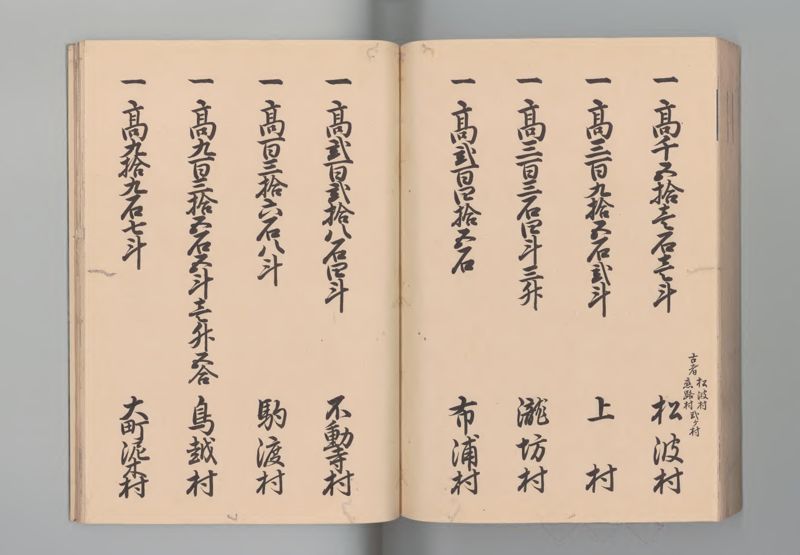 一高千五拾壱石壱斗
古者松波村
鹿路村弐ケ村
松波村
一高三百九拾五石弐斗
上村
一高三百三石四斗三升
瀧坊村
一高弐百四拾五石
布浦村
一高弐百弐拾八石四斗
不動寺村
一高百三拾六石八斗
駒渡村
一高九百三拾五石五斗壱升五合
鳥越村
一高九拾九石七斗
大町泥木村